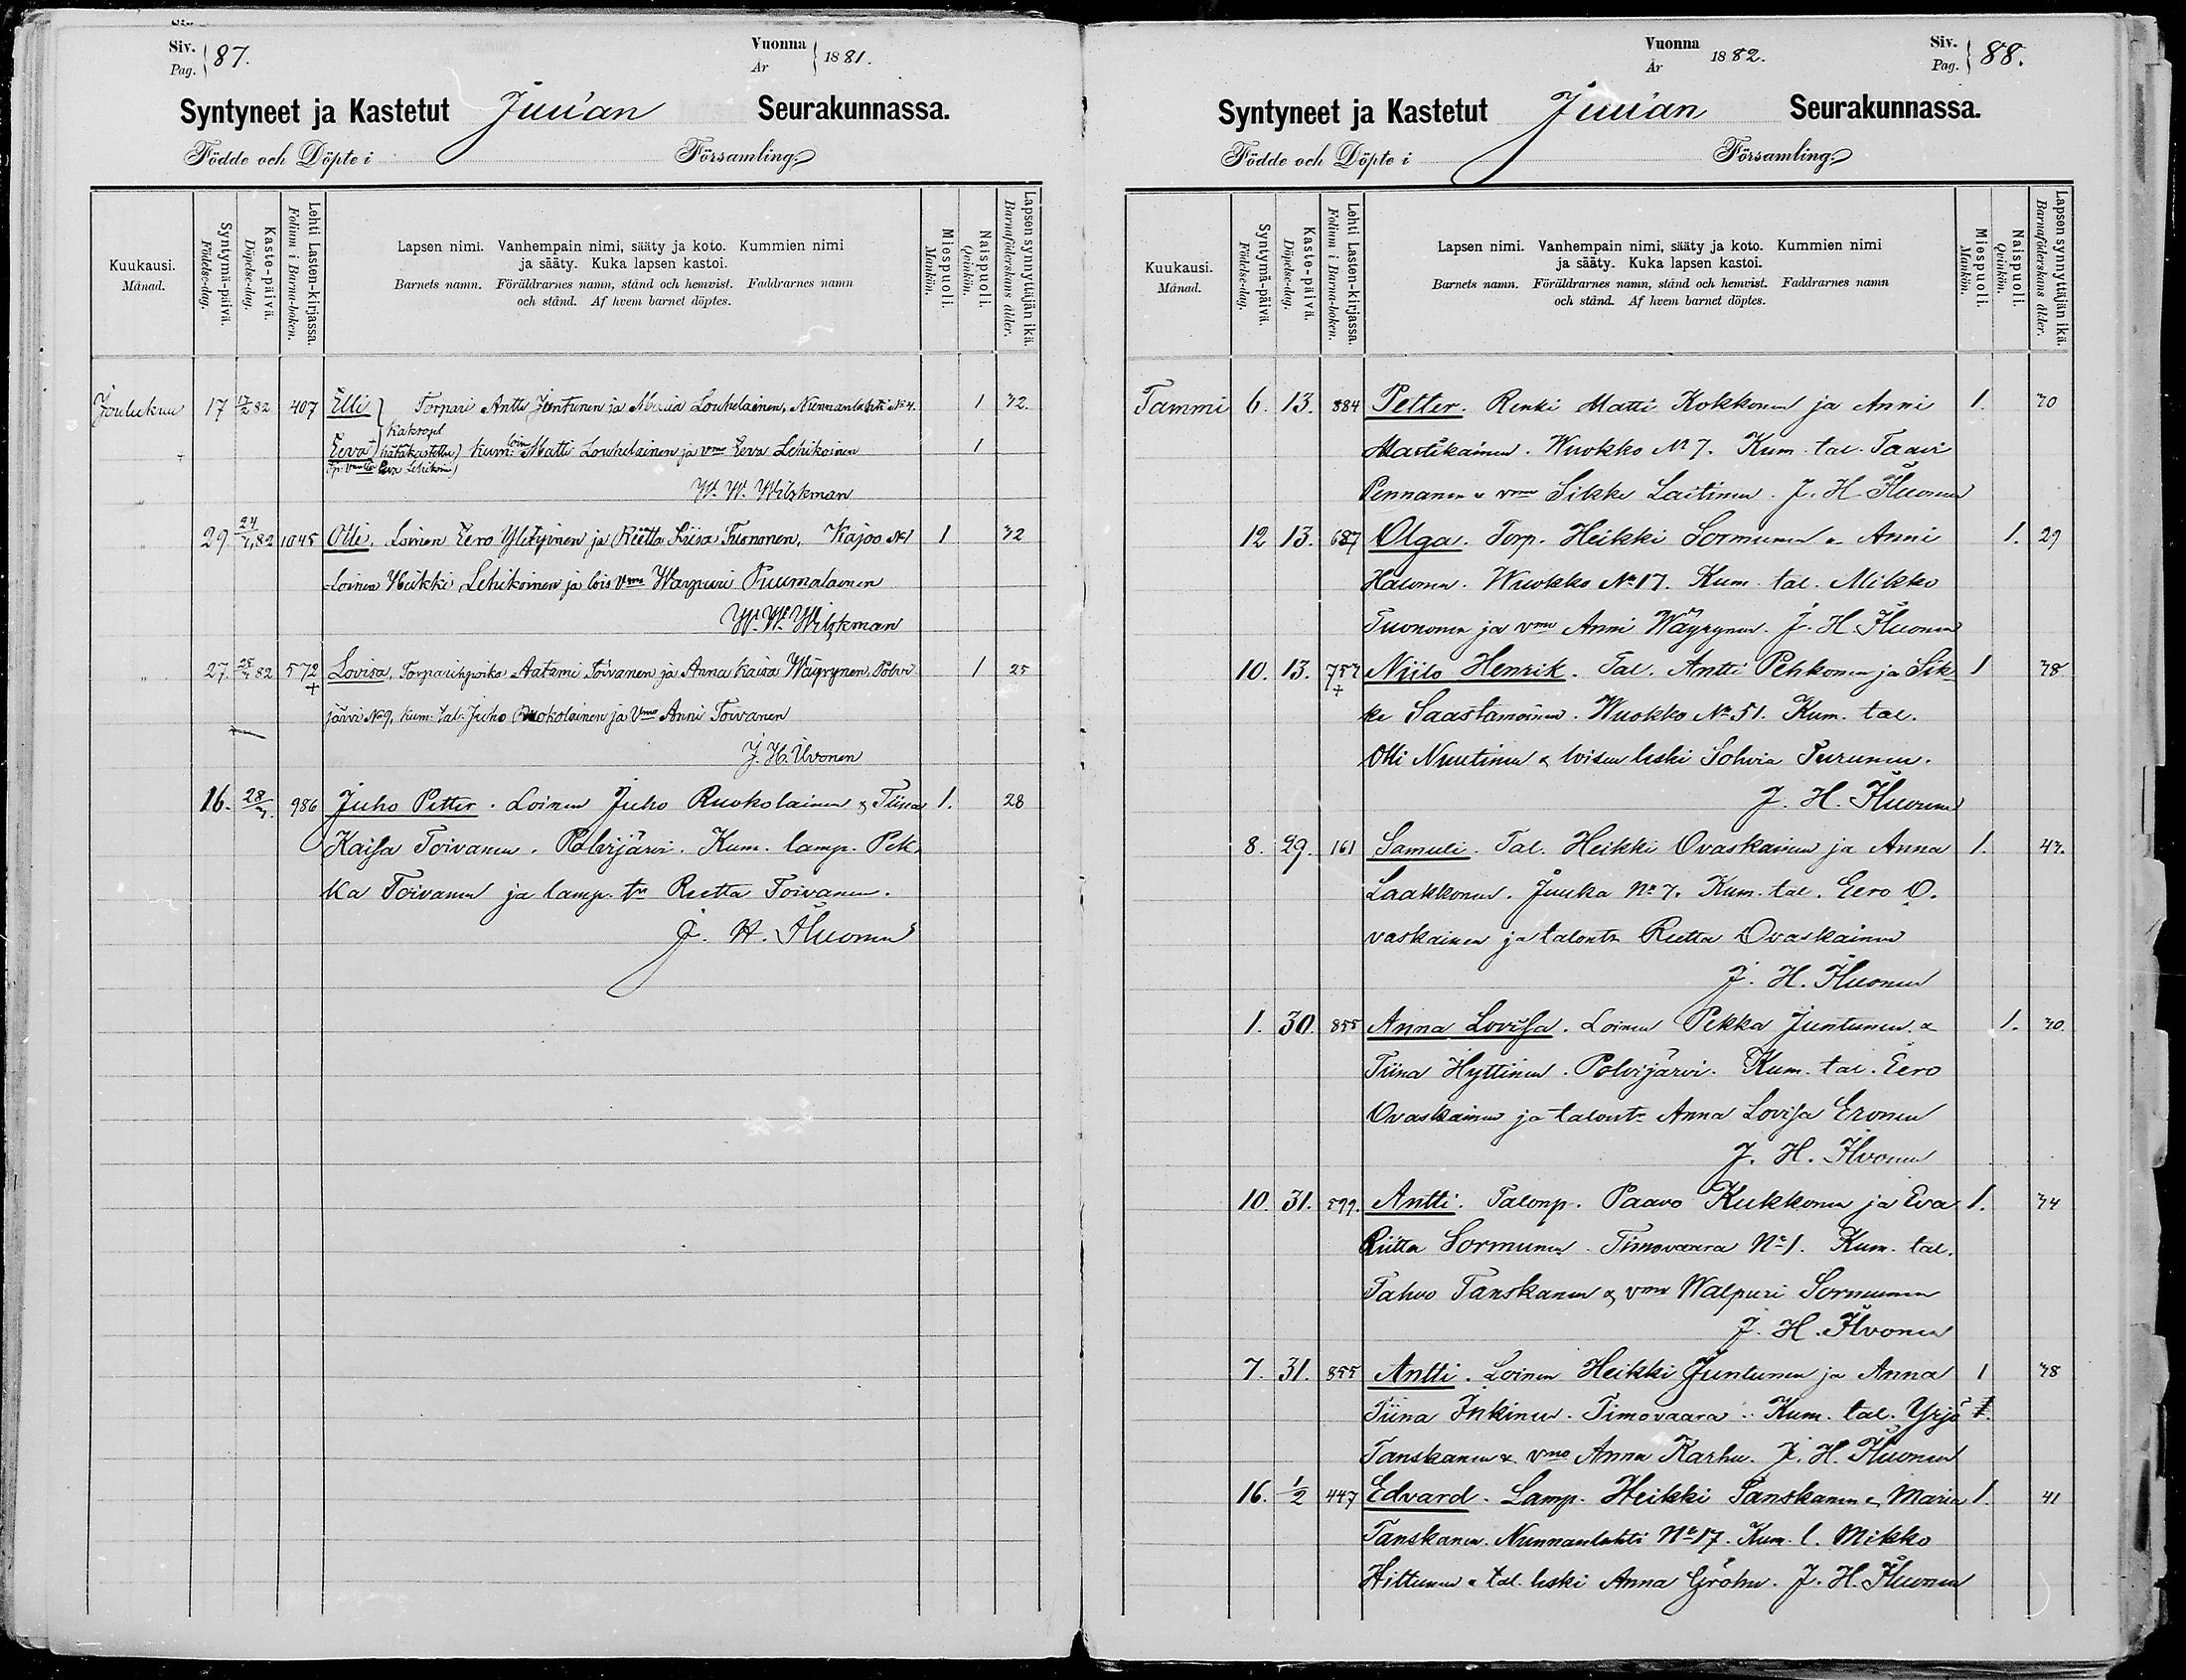 Siv. Pag. 87.
Vuonna År 1881.
Syntyneet ja Kastetut Juuan Seurakunnassa.
Födde och Döpte i Församling.
Kuukausi. Månad.
Syntymä-päivä. Födelse-dag.
Kaste-päivä. Döpelse-dag.
Lehti Lasten-kirjassa. Folium i Barna-boken.
Lapsen nimi. Vanhempain nimi, sääty ja koto. Kummien nimi
ja sääty. Kuka lapsen kastoi.
Barnets namn. Föräldrarnes namn, stånd och hemvist. Faddrarnes namn
och stånd. Af hvem barnet döptes.
Miespuoli. Mankön.
Naispuoli. Qvinkön.
Lapsen synnyttäjän ikä. Barnaföderskans ålder.
Joulukuu 17 17/2 82 407 Elli Torpari Antti Juntunen ja Maria Louhelainen, Nunnanlahti № 4. 1 32.
Kaksoset
Eeva + hätäkastettu kum: loin Matti Louhelainen ja vmo Eeva Lehikoinen 1
Eeva Lehikoin
W. W. Wilskman
„ 29. 24/4 82 1045 Olli, Loinen Eero Ylityinen ja Riitta Liisa Tuononen, Kajoo № 1 1 32
Loinen Heikki Lehikoinen ja lois Vmo Warpuri Puumalainen
W. W. Wilskman
„ 27. 82 572 + Lovisa, Torparihpoika Aatami Toivanen ja Anna Kaisa Wäyrynen, Polvi- 1 25
järvi № 9, kum: tal: Juho Ruokolainen ja Vmo Anni Toivanen
J. H. Ilvonen
16. 28/ 986 Juho Petter. Loinen Juho Ruokolainen & Tiina 1. 28
Kaisa Toivanen. Polvijärvi. Kum. lamp. Pek-
ka Toivanen ja lamp. tr Reetta Toivanen.
J. H. Ilvonen
Vuonna År 1882.
Siv. Pag. 88.
Syntyneet ja Kastetut Juuan Seurakunnassa.
Födde och Döpte i Församling.
Kuukausi. Månad.
Syntymä-päivä. Födelse-dag.
Kaste-päivä. Döpelse-dag.
Lehti Lasten-kirjassa. Folium i Barna-boken.
Lapsen nimi. Vanhempain nimi, sääty ja koto. Kummien nimi
ja sääty. Kuka lapsen kastoi.
Barnets namn. Föräldrarnes namn, stånd och hemvist. Faddrarnes namn
och stånd. Af hvem barnet döptes.
Miespuoli. Mankön.
Naispuoli. Qvinkön.
Lapsen synnyttäjän ikä. Barnaföderskans ålder.
Tammi 6. 13. 884 Petter. Renki Matti Kokkonen ja Anni 1. 30
Martikainen. Wuokko № 7. Kum. tal. Taavi
Pennanen & vmo Sikke Laitinen. J. H. Ilvonen
12 13. 687 Olga. Torp. Heikki Sormunen & Anni 1. 29
Halonen. Wuokko № 17. Kum. tal. Mikko
Tuononen ja vmo Anni Wäyrynen. J. H. Ilvonen
10. 13. 757 + Niilo Henrik. Tal. Antti Pehkonen ja Sik- 1 38
ke Saastamoinen. Wuokko № 51. Kum. tal.
Olli Nuutinen & loisen leski Sohvia Turunen.
J. H. Ilvonen
8. 29. 161 Samuli. Tal. Heikki Ovaskainen ja Anna 1. 43.
Laakkonen. Juuka № 7. Kum. tal. Eero O-
vaskainen ja talontr Reetta Ovaskainen
J. H. Ilvonen
1. 30. 855 Anna Lovisa. Loinen Pekka Juntunen & 1. 30.
Tiina Hyttinen. Polvijärvi. Kum. tal. Eero
Ovaskainen ja talontr Anna Lovisa Eronen
J. H. Ilvonen
10. 31. 599. Antti. Talonp. Paavo Kukkonen ja Eva 1. 34
Riitta Sormunen. Timovaara № 1. Kum. tal.
Tahvo Tanskanen & vmo Walpuri Sormunen
J. H. Ilvonen
7. 31. 855 Antti. Loinen Heikki Juntunen ja Anna 1 38
Tiina Inkinen. Timovaara. Kum. tal. Yrjö 1.
Tanskanen & vmo Anna Karhu. J. H. Ilvonen
16. 1/2 447 Edvard. Lamp. Heikki Tanskanen & Maria 1. 41
Tanskanen. Nunnanlahti № 17. Kum. l. Mikko
Hiltunen & tal. leski Anna Gröhn. J. H. Ilvonen